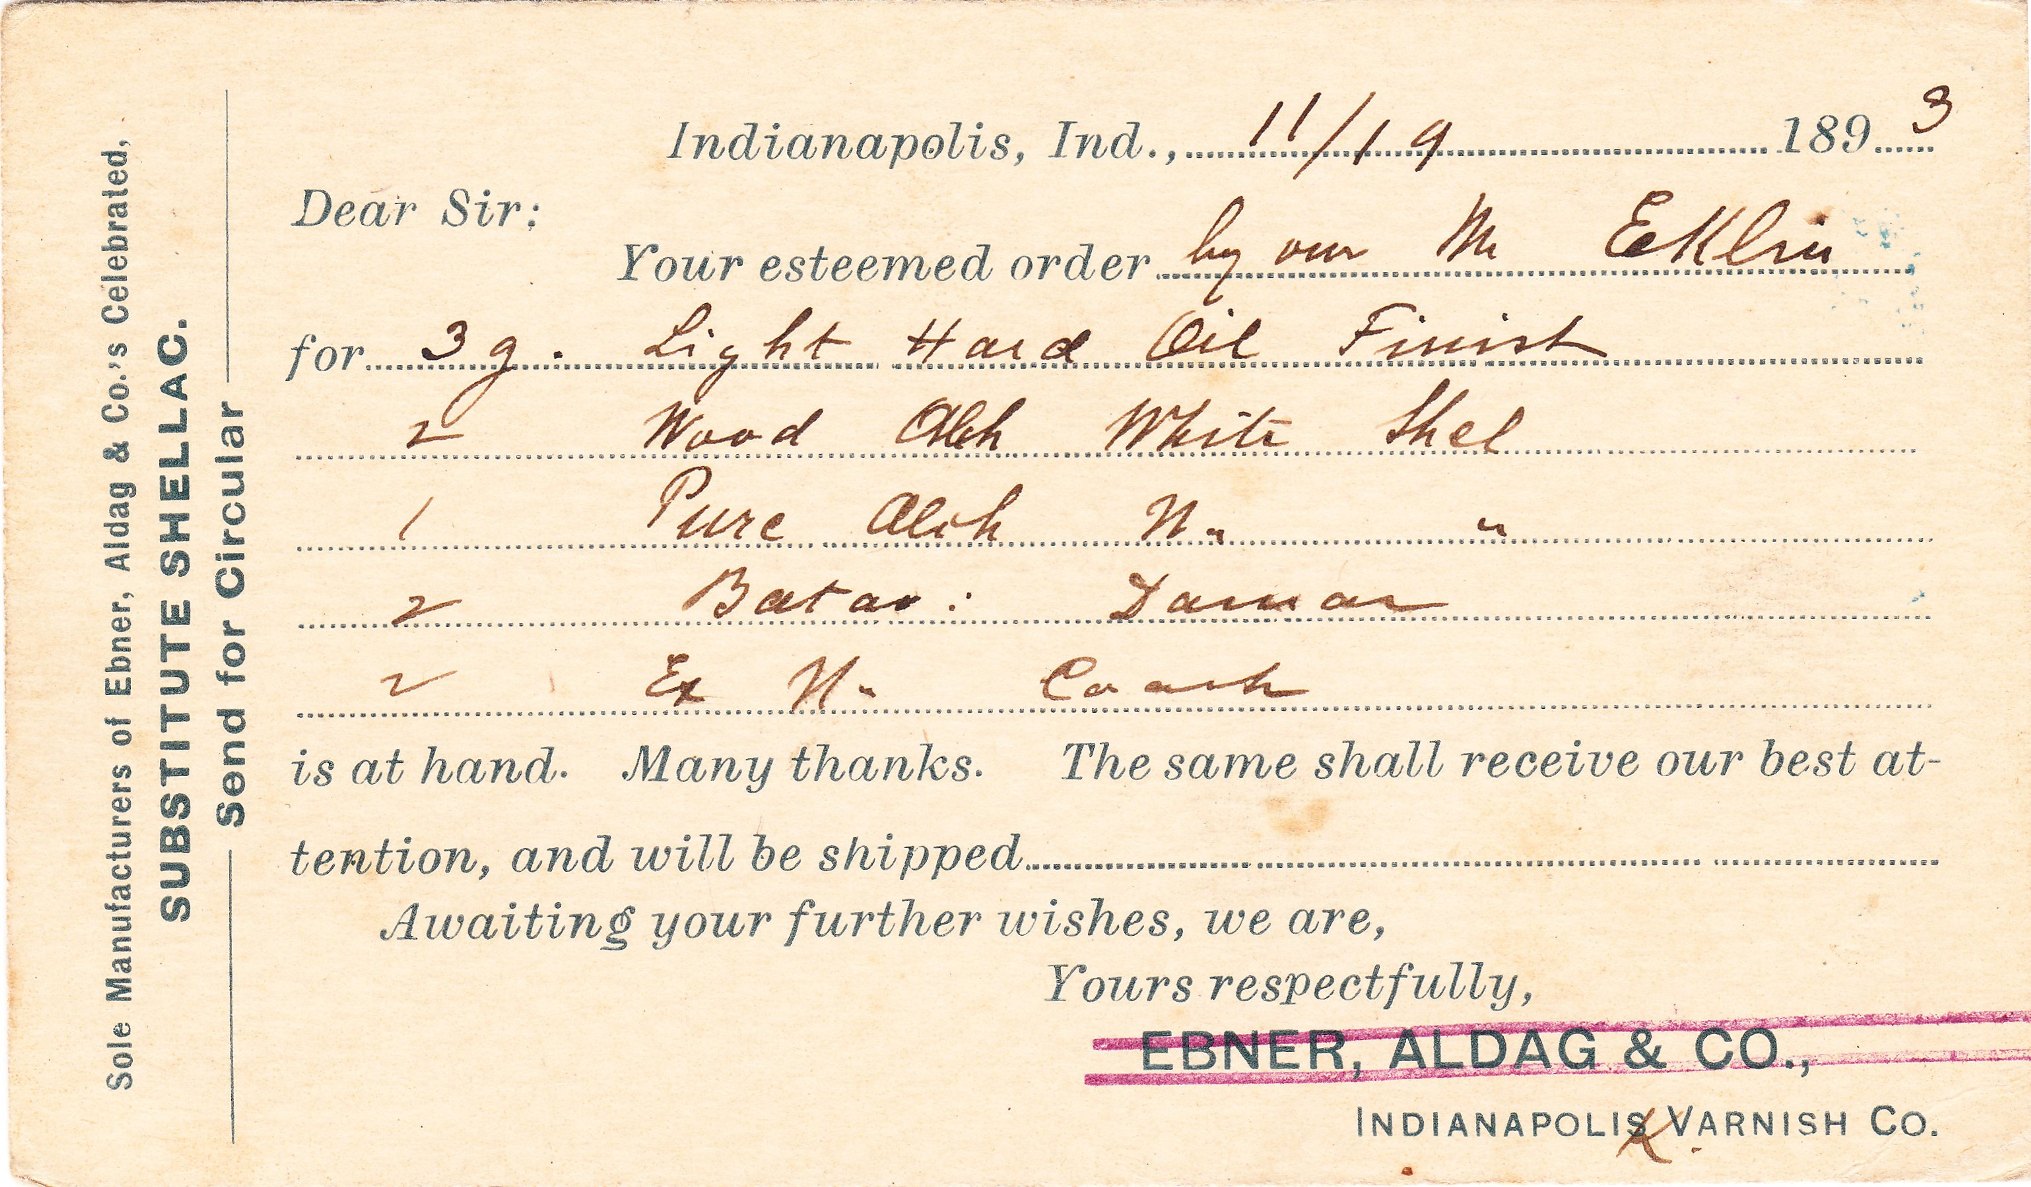 Sole Manufacturers of Ebner, Aldag & Co.'s Celebrated,
SUBSTITUTE SHELLAC.
Send for Circular
Indianapolis, Ind., 11/19 1893
Dear Sir:
Your esteemed order by our Mr
for 3 g. Light Hard Oil Finish
2 Wood Alch White Shel
1 Pure Alch "
2 Batav: Damar
2 Ex Coach
is at hand. Many thanks. The same shall receive our best at-
tention, and will be shipped
Awaiting your further wishes, we are,
Yours respectfully,
EBNER, ALDAG & CO.,
INDIANAPOLIS VARNISH CO.
K.